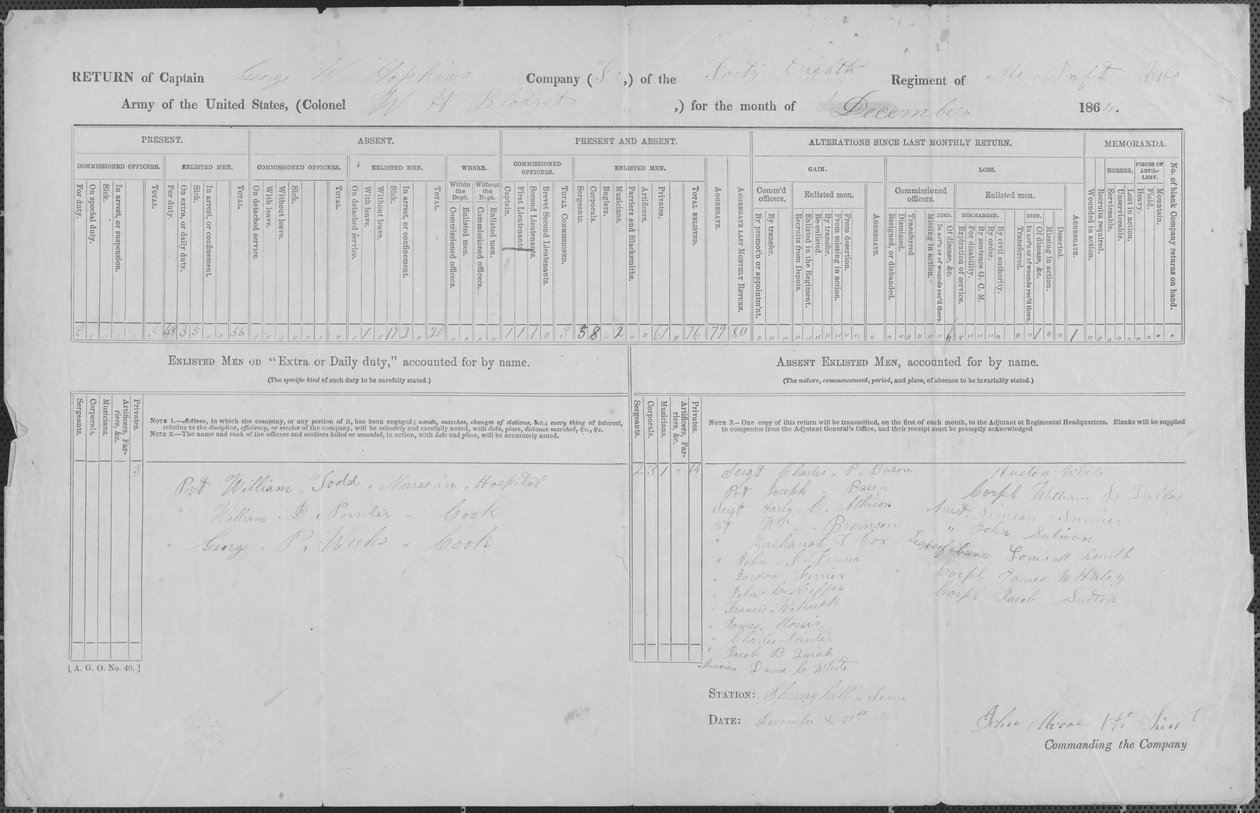 RETURN of Captain George W Hopkins Company ( ,) of the Forty Eighth Regiment of Mo Inf't Vols
Army of the United States, (Colonel W H Blodget ,) for the month of December 1864.
PRESENT. ABSENT. PRESENT AND ABSENT. ALTERATIONS SINCE LAST MONTHLY RETURN. MEMORANDA.
COMMISSIONED OFFICERS. ENLISTED MEN. COMMISSIONED OFFICERS. ENLISTED MEN. WHERE. COMMISSIONED OFFICERS. ENLISTED MEN. GAIN. LOSS. HORSES. PIECES OF ARTILLERY.
Within the Dept. Without the Dept. Comm'd officers. Enlisted men. Commissioned officers. Enlisted men.
DIED. DISCHARGED. DIED.
For duty. On special duty. Sick. In arrest, or suspension. TOTAL.
For duty. On extra, or daily duty. Sick. In arrest, or confinement. TOTAL.
On detached service. With leave. Without leave. Sick. TOTAL.
On detached service. With leave. Without leave. Sick. In arrest, or confinement. TOTAL.
Commissioned officers. Enlisted men. Commissioned officers. Enlisted men.
Captain. First Lieutenant. Second Lieutenants. Brevet Second Lieutenants. TOTAL COMMISSIONED.
Sergeants. Corporals. Buglers. Musicians. Farriers and Blacksmiths. Artificers. Privates. TOTAL ENLISTED.
AGGREGATE. AGGREGATE LAST MONTHLY RETURN.
By promot'n or appointm'nt. By transfer. Recruits from Depots. Enlisted in the Regiment. Re-enlisted. By transfer. From missing in action. From desertion. AGGREGATE.
Resigned, or disbanded. Dismissed. Transferred Missing in action. In act'n or of wounds rec'd there. Of disease, &c.
Expiration of service. For disability. By sentence G. C. M. By order. By civil authority. Transferred. In act'n or of wounds rec'd there. Of disease, &c. Missing in action. Deserted. AGGREGATE.
Wounded in action. Recruits required. Serviceable. Unserviceable. Lost in action. Heavy. Field. Mountain. No. of blank Company returns on hand.
3 " " " 3 48 3 5 " " 56 " " " " " " 1 " 17 2 " 20 " " " " 1 1 1 " 3 5 8 " 2 " " 61 " 76 79 80 " " " " " " " " " " " " " " " " " " " " " 1 " " 1 " " " " " " " " "
ENLISTED MEN ON "Extra or Daily duty," accounted for by name.
(The specific kind of such duty to be carefully stated.)
Sergeants. Corporals. Musicians. Artificers, Farriers, &c. Privates.
NOTE 1.—Actions, in which the company, or any portion of it, has been engaged; scouts, marches, changes of stations, &c.; every thing of interest,
relating to the discipline, efficiency, or service of the company, will be minutely and carefully noted, with date, place, distance marched, &c., &c.
NOTE 2.—The name and rank of the officers and soldiers killed or wounded, in action, with date and place, will be accurately noted.
3
Pvt William Todd " Nurse in Hospital
" William D. Pointer " Cook
" George P. Weeks " Cook
[A. G. O. No. 40.]
ABSENT ENLISTED MEN, accounted for by name.
(The nature, commencement, period, and place, of absence to be invariably stated.)
Sergeants. Corporals. Musicians. Artificers, Farriers, &c. Privates.
NOTE 3.—One copy of this return will be transmitted, on the first of each month, to the Adjutant at Regimental Headquarters. Blanks will be supplied
to companies from the Adjutant General's Office, and their receipt must be promptly acknowledged
2 3 1 " 14
Sergt Charles P. Bacon
Pvt Joseph Bacon
Sergt Harly C. Atkison
Pvt Wm Bronson
" Zachariah T Cox
" John S Ferrier
" Jordon Ferrier
" John C Keffer
" Francis W.
" James
" Charles Pointer
" Jacob B
Musician David C White
Huston White
Corpl William S
Arrest Simeon
" John Sulivan
Leave of Louis M Smith
Corpl James W Haley
Corpl Jacob Sutton
STATION: Springhill, Tenn
DATE: December 31st 1864
John Moore 1st Lieut
Commanding the Company